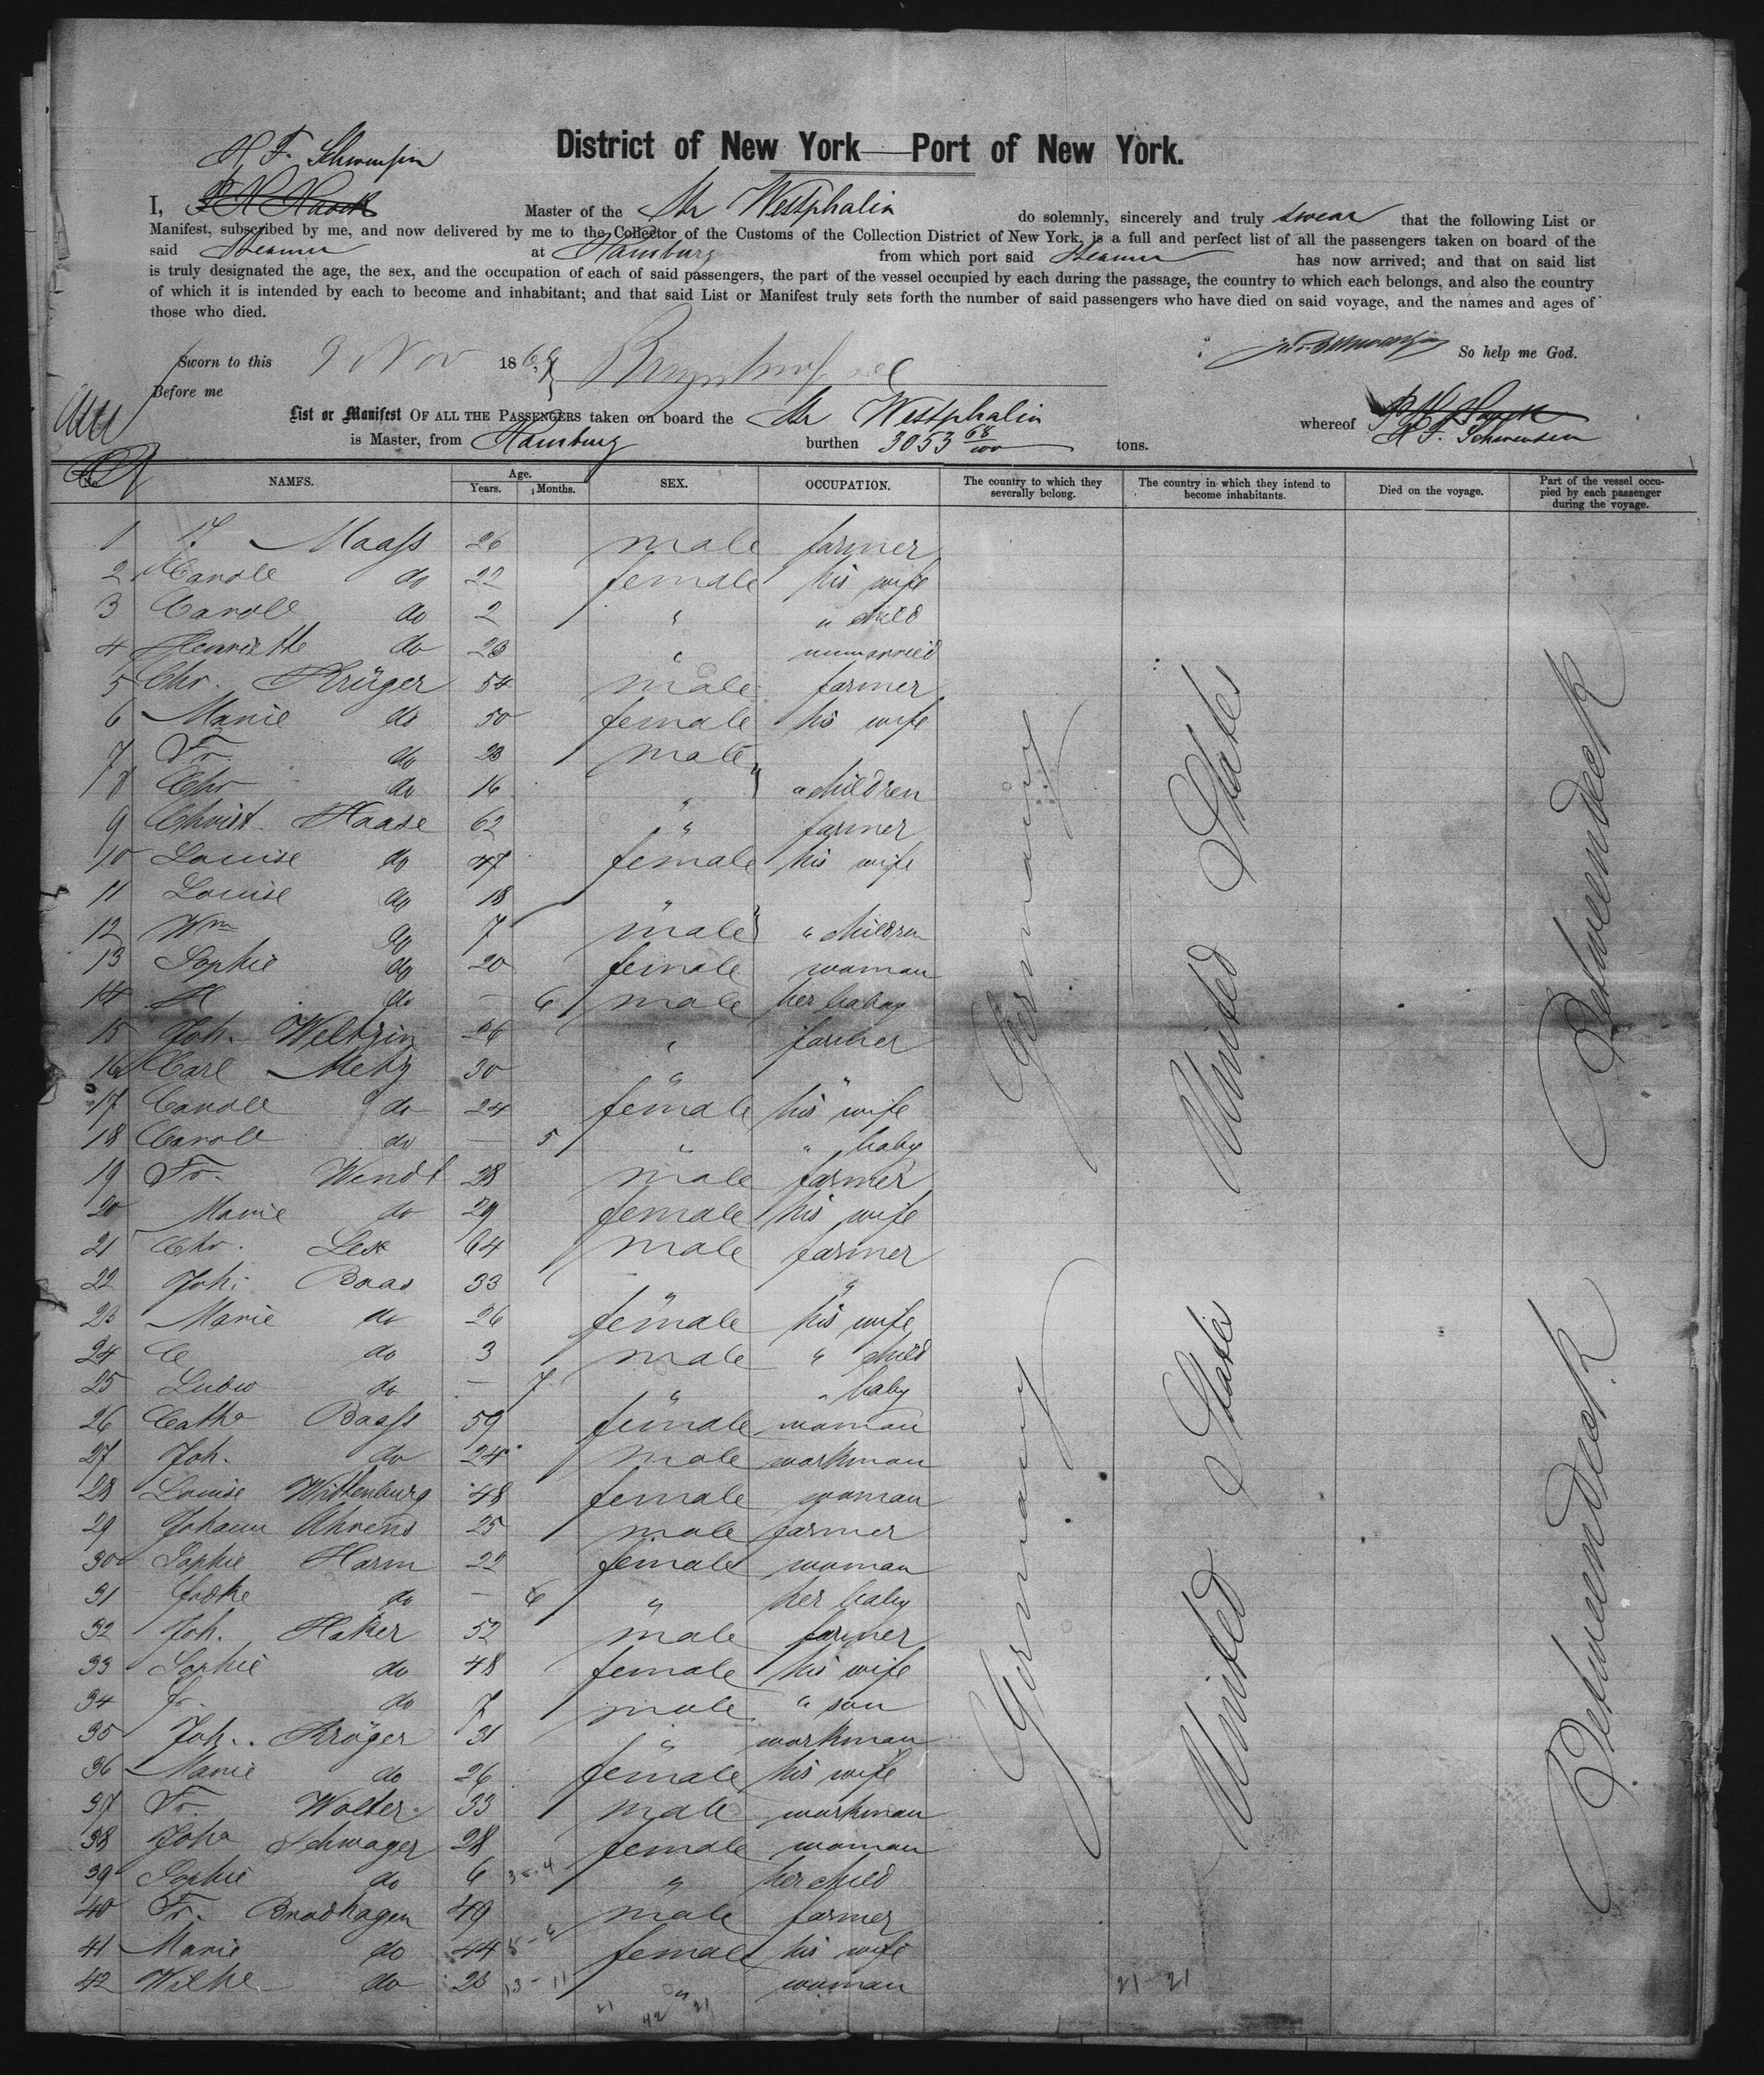 District of New York—Port of New York.
H. F. Schwensen
I, Master of the Str Westphalia do solemnly, sincerely and truly swear that the following List or
Manifest, subscribed by me, and now delivered by me to the Collector of the Customs of the Collection District of New York, is a full and perfect list of all the passengers taken on board of the
said Steamer at Hamburg from which port said Steamer has now arrived; and that on said list
is truly designated the age, the sex, and the occupation of each of said passengers, the part of the vessel occupied by each during the passage, the country to which each belongs, and also the country
of which it is intended by each to become and inhabitant; and that said List or Manifest truly sets forth the number of said passengers who have died on said voyage, and the names and ages of
those who died.
So help me God.
Sworn to this 9 Nov 1869
Before me
List or Manifest OF ALL THE PASSENGERS taken on board the Str Westphalia whereof H. F. Schwensen
is Master, from Hamburg burthen 3053 68/100 tons.
No. NAMES. Age. Years. Months. SEX. OCCUPATION. The country to which they severally belong. The country in which they intend to become inhabitants. Died on the voyage. Part of the vessel occupied by each passenger during the voyage.
1 Maass 26 male farmer
2 Carole do 22 female his wife
3 Carole do 2 " " child
4 Henriette do 23 " unmarried
5 Chr. Krüger 54 male farmer
6 Marie do 50 female his wife
7 Fr. do 23 male
8 Chr do 16 " " children
9 Christ. Haase 62 " farmer
10 Louise do 47 female his wife
11 Louise do 18 "
12 Wm do 7 male " children
13 Sophie do 20 female woman
14 H do — 6 male her babay
15 Joh. Weltzin 26 " farmer
16 Carl Metz 30 " "
17 Carole do 24 female his wife
18 Carole do — 5 " " baby
19 Fr. Wendt 28 male farmer
20 Marie do 29 female his wife
21 Chr. 64 male farmer
22 Joh. Baas 33 " "
23 Marie do 26 female his wife
24 C do 3 male " child
25 Ludw do — 7 " " baby
26 Cathe Baass 59 female woman
27 Joh. do 24 male workman
28 Louise Wittenburg 48 female woman
29 Johann Ahrens 25 male farmer
30 Sophie Harm 22 female woman
31 do — 6 " her baby
32 Joh. Haker 52 male farmer
33 Sophie do 48 female his wife
34 Fr. do 7 male " son
35 Joh. Kröger 31 " workman
36 Marie do 26 female his wife
37 Fr. Wolter 33 male workman
38 Joha Schwager 28 female woman
39 Sophie do 6 " her child
40 Fr. Bradhagen 49 male farmer
41 Marie do 44 female his wife
42 Wilhe do 23 " woman
Germany United States Betweendeck
Germany United States Betweendeck
21 42 21
21-21